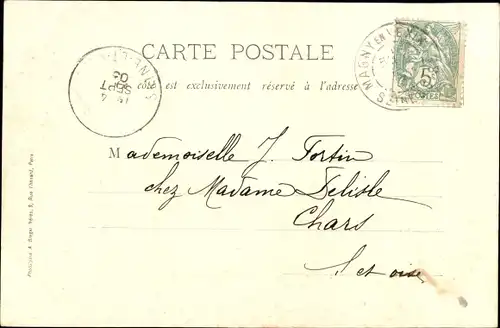 CARTE POSTALE
Ce côté est exclusivement réservé à l'adresse
MAGNY EN VEXIN
SEINE
5
SEPT
05
Mademoiselle J. Fortin
chez Madame Delisle
Chars
S et oise
Phototypie A. Berger frères, 9, Rue Thénard, Paris